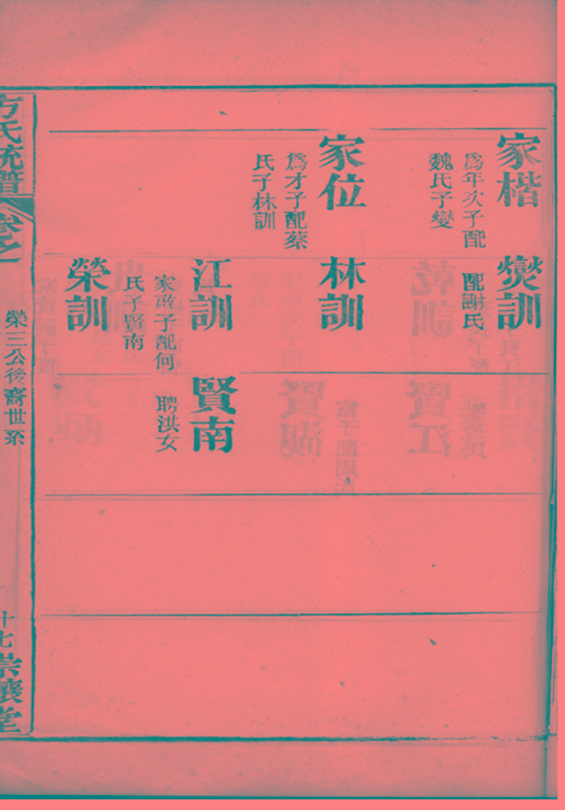 家楷
為年次子配
魏氏子燮
燮訓
配謝氏
家位
為才子配蔡
氏子林訓
林訓
江訓
家政子配何
氏子賢南
賢南
聘洪女
榮訓
方氏統譜
卷之一
榮三公後裔世系
十七
崇讓堂